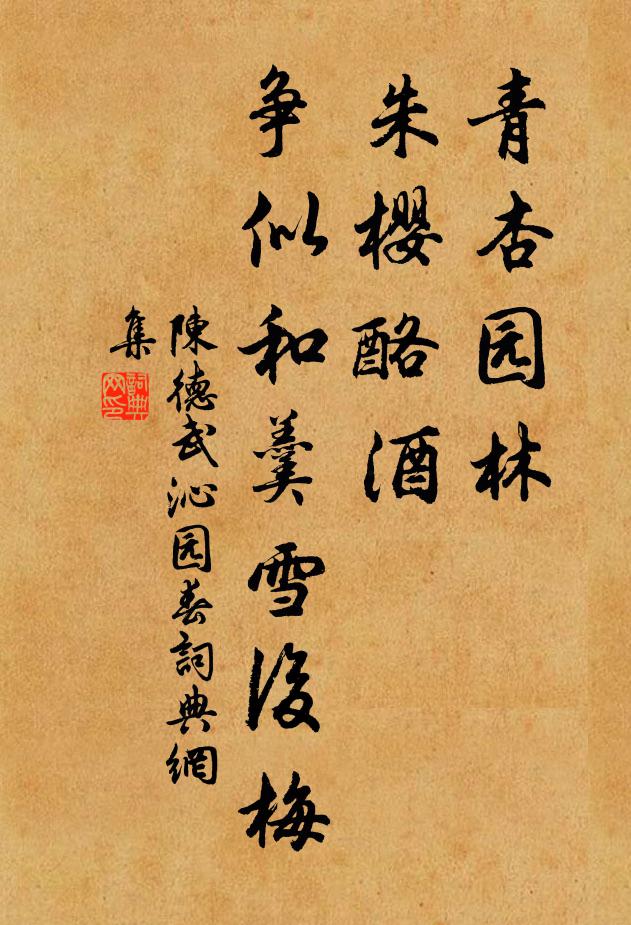 青杏园林
朱樱酪酒
争似和羹雪後梅
陳德武沁园春詞典網
集
詞典網印